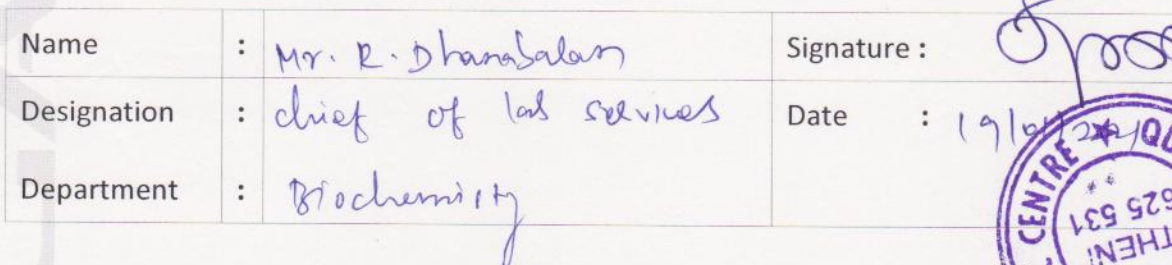 Name : Mr. R. Dhanabalan Signature :
Designation : chief of lab services Date :
Department : Biochemistry
CENTRE ★ QU
625 531
THENI